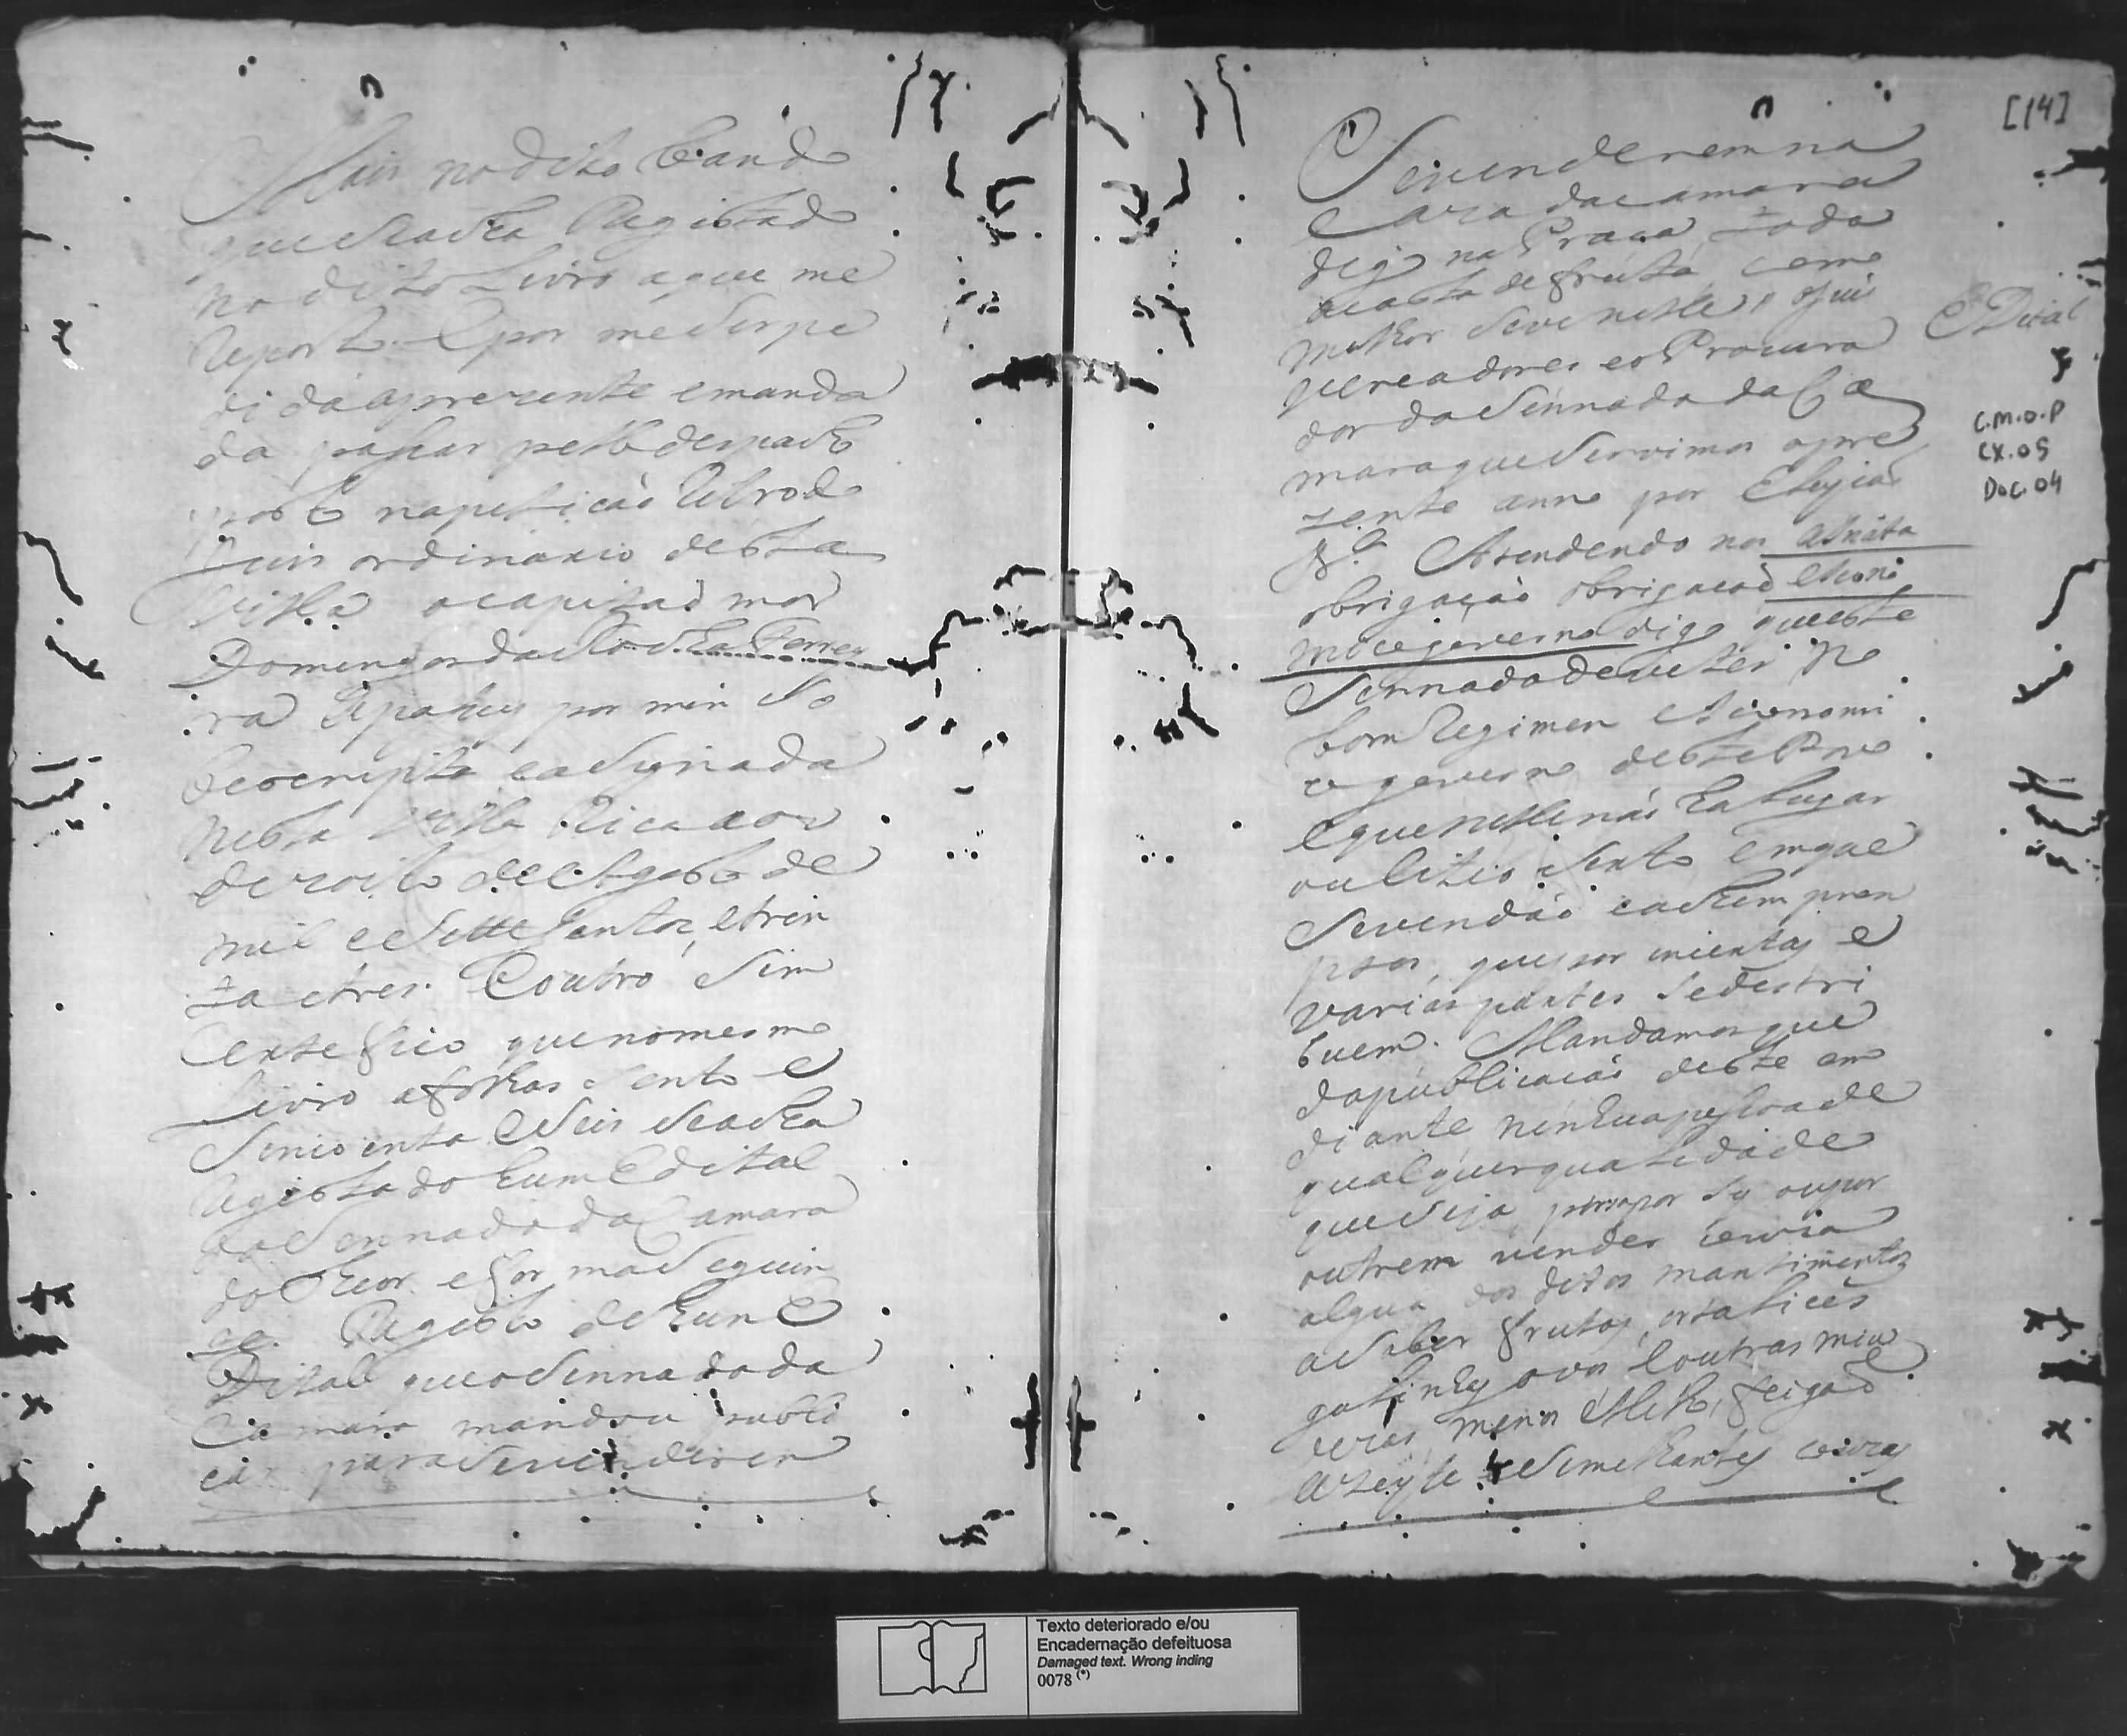 Mais no dito bando
que se acha Registado
no dito Livro a que me
Reporto. E por me ser pe
dida aprezente e manda
da pasar pello despacho
posto na petição Retro do
Juis ordinario desta
Villa o capitaõ mor
Domingos da Rocha Ferrey
ra a pasey por mim So
bescripta easignada
nesta Villa Rica aos
dezoito de Agosto de
mil e Sette Sentos, e trin
ta etres. E outro Sim
Certefico que no mesmo
Livro afolhas Sento e
Sincoenta e Seis Se acha
Registado hum Edital
do Sennado da Camara
do theor. e forma Seguin
te. Registo de hum E
Dital que o Sennado da
Camara mandou publi
car para Se venderem
[14]
Se venderem na
Caza da camara
digo na Praça toda
acasta de fruta, como
melhor Se ve nelle, o Juis
vereadores eo Procura
dor do Sennado da Ca
mara que Servimos opre
zente anno por Eleyçaõ
&.ª Atendendo nos
obrigaçaõ obrigaçaõ
mico governo digo que este
Sennado deve ter no
bom Regimen e Aconomi
co governo deste Povo
e que nelle naõ ha Lugar
ou Citio Serto em que
Se vendaõ e achem prom
ptos, que por muentas e
varias partes Se destri
buem. Mandamos que
da publicaçaõ deste em
diante nenhua pessoa de
qualquer qualidade
que Seja, posa por Sy ou por
outrem vender couza
algua dos ditos mantimentos
a Saber frutas, ortaliçes
galinhas ovos e outras miu
dezas menos Milho, feijaõ
azeyte e Semelhantes couzas
Edital
C.M.O.P
CX.05
Doc.04
Texto deteriorado e/ou
Encadernação defeituosa
Damaged text. Wrong inding
0078 (*)